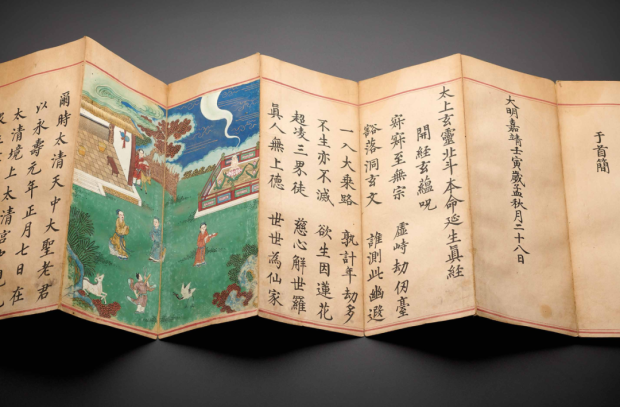 于首簡
大明嘉靖壬寅歲孟秋月二十八日
太上玄靈北斗本命延生眞經
開經玄蘊呪
寂寂至無宗 虛峙劫仞臺
豁落洞玄文 誰測此幽遐
一入大乘路 孰計年劫多
不生亦不滅 欲生因蓮花
超凌三界徒 慈心解世羅
眞人無上德 世世為仙家
爾時太清天中大聖老君
以永壽元年正月七日在
太清境上太清宮中